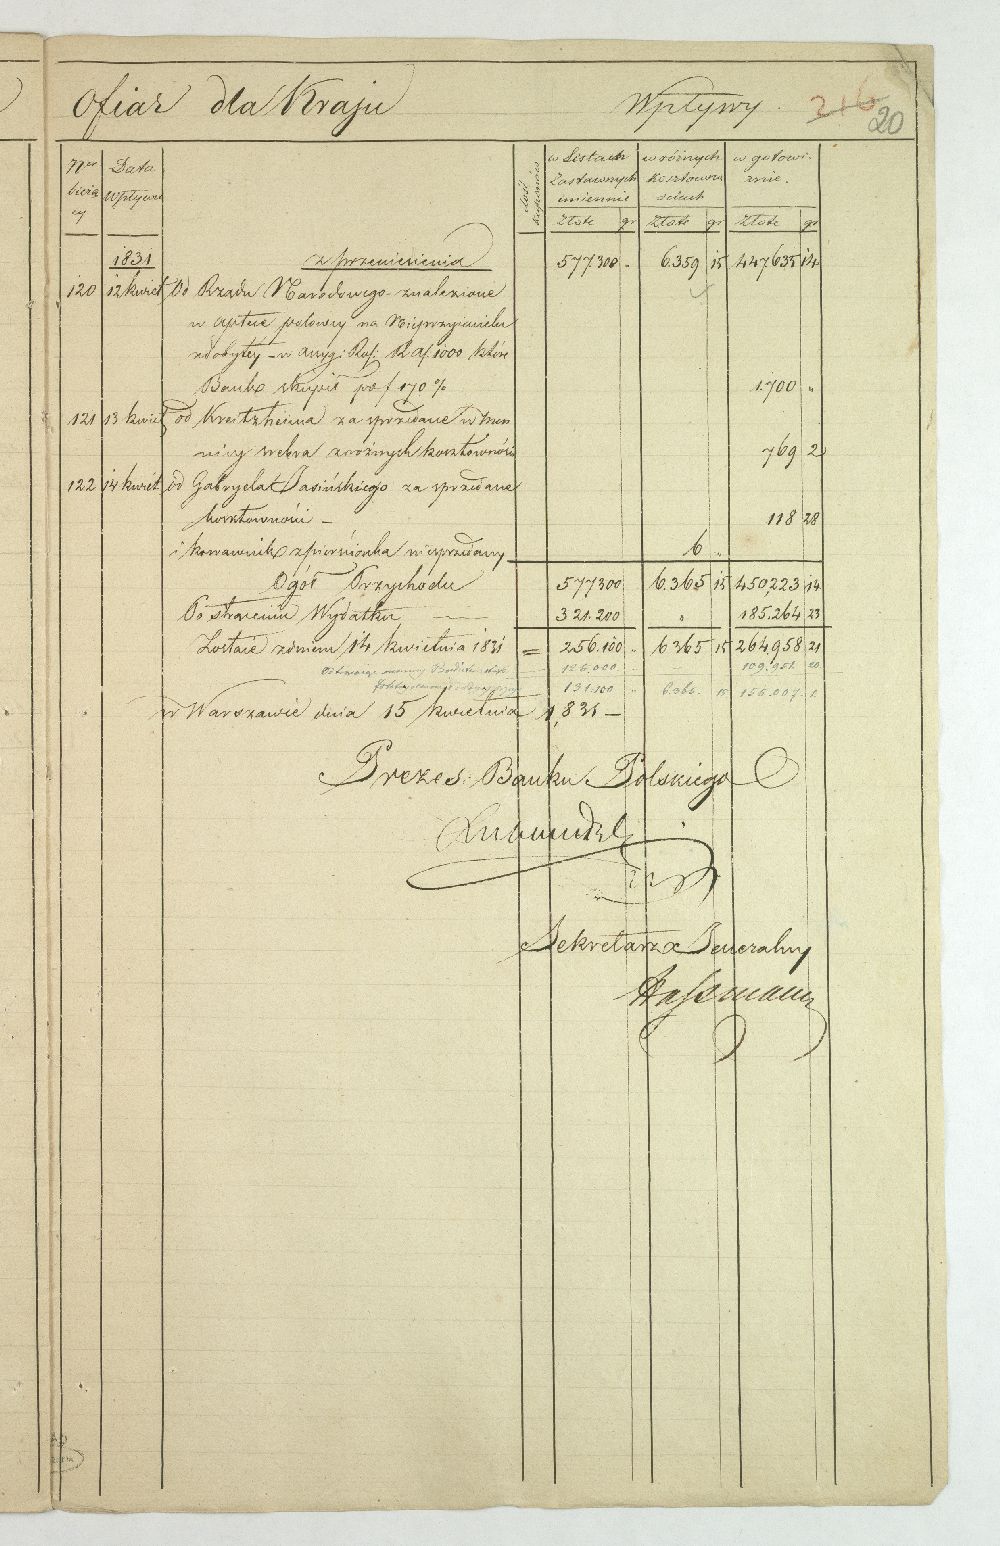 Ofiar dla Kraju Wpływy 216 20
Ner Data w Listach w różnych w gotowi-
bieżą- Wpływu Zastawnych kosztowno- znie.
cy Ilość kuponów imiennie ściach
Złote gr Złote gr Złote gr
1831 z przeniesienia 577300 - 6.359 15 447635 14
120 12 kwiet Od Rządu Narodowego znalezione
w aptece polowey na Nieprzyiacielu
zdobytéy - w assyg: Ros: R. as. 1000 które
Bank skupił po f 170 % 1.700 "
121 13 kwiet od Kreitzheima za sprzedane w men-
nicy srebra z różnych kosztowności 769 2
122 14 kwiet od Gabryela Jasińskiego za sprzedane
kosztowności - 118 28
i kamawnik z pierścionka niesprzedany 6 "
Ogół Przychodu 577300 6.365 15 450,223 14
Po strąceniu Wydatku 321.200 " 185.264 23
Zostaie z dniem 14 kwietnia 1831 = 256.100 " 6365 15 264.958 21
126.000 109.951 20
131.100 " 6.365. 15 155.007 1
w Warszawie dnia 15 kwietnia 1,831 -
Prezes Banku Polskiego
Lubowidzki
Sekretarz Jeneralny
Hassmann